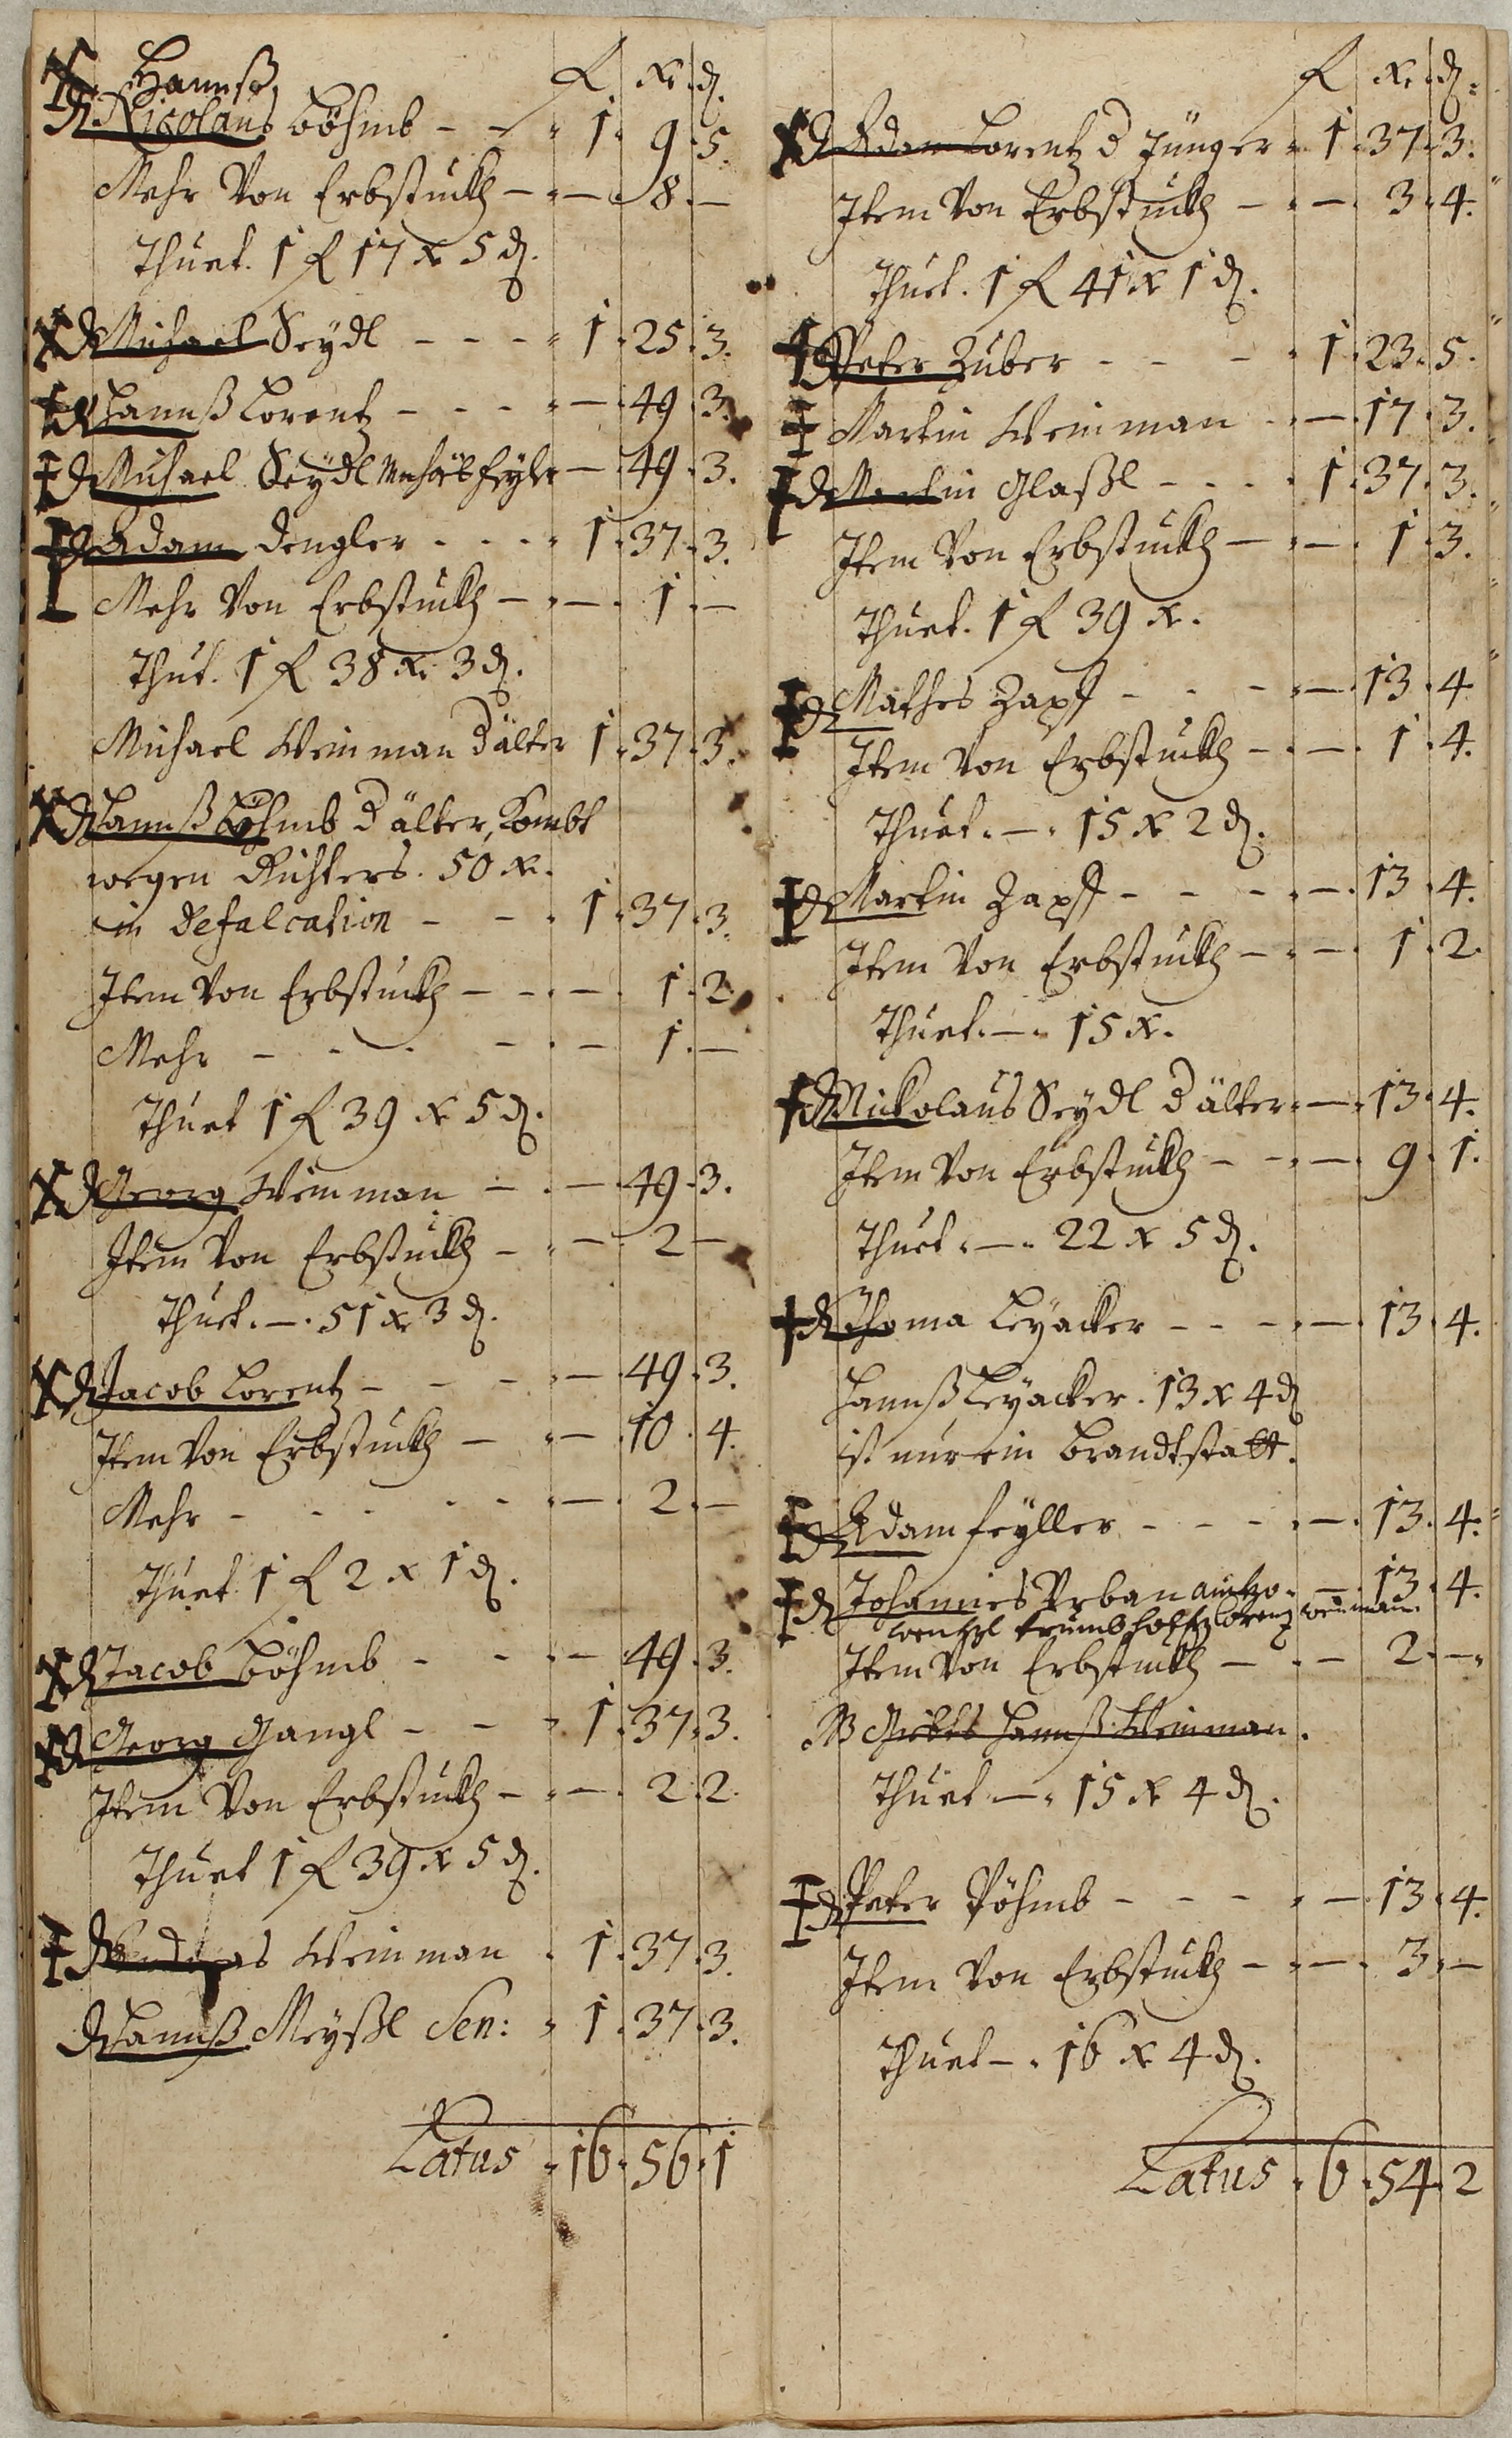 Hannß
f. Kr. d.
Nicolaus Böhmb - - 1. 9. 5.
Mehr Von Erbstuckh - - 8. -
Thuet. 1 f 17 x 5 d.
Michael Seydl - - - 1. 25. 3.
Hannß Lorentz - - - - 49. 3.
Michael Seydl - 49. 3.
Adam Dengler - - - 1. 37. 3.
Mehr Von Erbstuckh - - 1. -
Thut. 1 f 38 x. 3 d.
Michael Weinman d älter 1. 37. 3.
Hannß Böhmb d älter, Kombt
wegen Richters. 50 x.
in Defalcation - - 1. 37. 3.
Item Von Erbstuckh - - - 1. 2.
Mehr - - - - - 1. -
Thuet 1 f 39 x 5 d.
Georg Weinman - - 49. 3.
Item Von Erbstuckh - - 2 -
Thuet. -. 51 x 3 d.
Jacob Lorentz - - - - 49. 3.
Item Von Erbstuckh - - 10. 4.
Mehr - - - - - - 2. -
Thuet 1 f 2 x 1 d.
Jacob Böhmb - - - 49. 3.
Georg Gangl - - - 1. 37. 3.
Item Von Erbstuckh - - 2. 2.
Thuet 1 f 39 x 5 d.
Andreas Weinman . 1. 37. 3.
Hannß Meyßl Sen: 1. 37. 3.
Latus . 16. 56. 1
f. Kr. d.
Adam Lorentz d Jünger 1. 37. 3.
Item Von Erbstuckh - - 3. 4.
Thuet. 1 f 41 x 1 d.
Peter Zuber - - - 1. 23. 5.
Martin Weinman - 17. 3.
Martin Glaßl - - - 1. 37. 3.
Item Von Erbstuckh - - 1. 3.
Thuet. 1 f 39 x.
Mathes Zapff - - - - 13. 4.
Item Von Erbstuckh - - 1. 4.
Thuet. -. 15 x 2 d.
Martin Zapff - - - - 13. 4.
Item Von Erbstuckh - - 1. 2.
Thuet. -. 15 x.
Nickolaus Seydl d älter. - 13. 4.
Item Von Erbstuckh - - - 9. 1.
Thuet. -. 22 x 5 d.
Thoma Leyacker - - - - 13. 4.
Hannß Leyacker. 13 x 4 d
ist nur ein Brandtstatt.
Adam Feyller - - - - 13. 4.
Johannes Urban - 13. 4.
Item Von Erbstuckh - - 2. -
NB Hannß Weinman.
Thuet -. 15 x 4 d.
Peter Pöhmb - - - - 13. 4.
Item Von Erbstuckh - - 3. -
Thuet -. 16 x 4 d.
Latus . 6. 54. 2